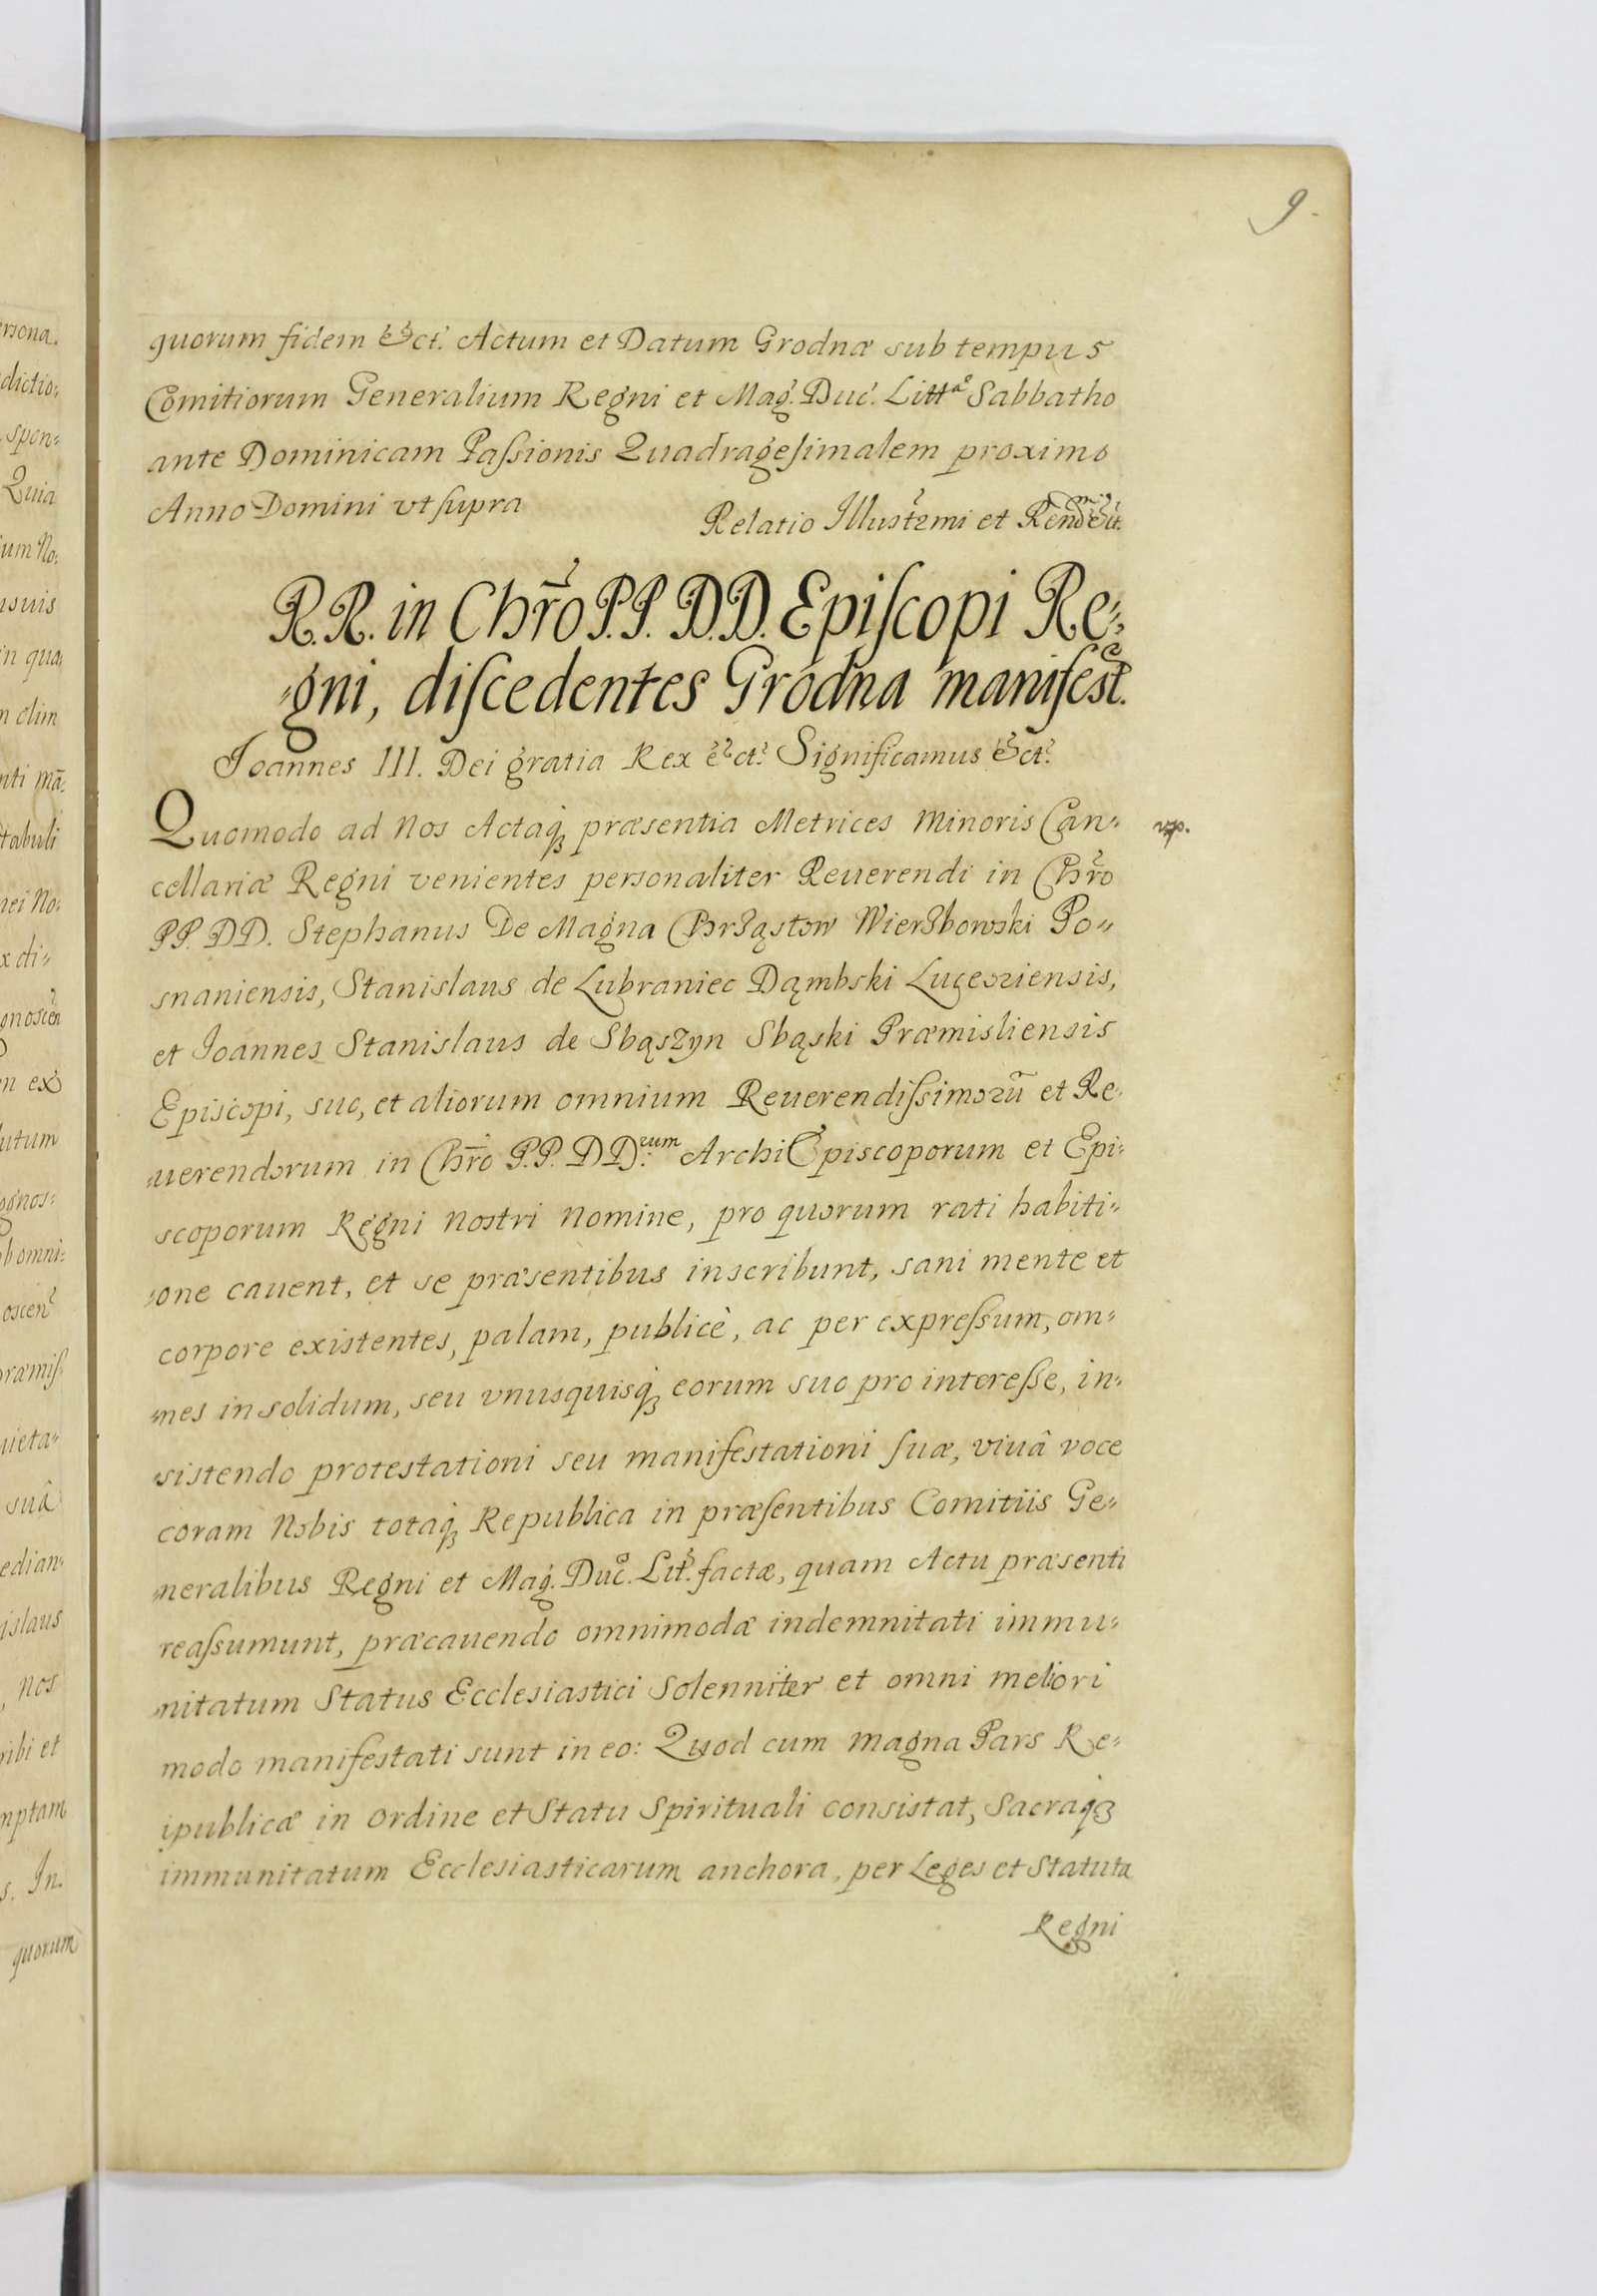 9.
quorum fidem &ct. Actum et Datum Grodnæ sub tempus
Comitiorum Generalium Regni et Mag. Duc. Litt.æ Sabbatho
ante Dominicam Paſsionis Quadrageſimalem proximo
Anno Domini vt ſupra
Relatio Illustrmi et Rendmi &ct.
R.R. in Chr̃o P.P. D.D. Epiſcopi Re⸗
⸗gni, diſcedentes Grodna manifest.
Joannes III. Dei gratia Rex &ct. Significamus &ct.
Quomodo ad Nos Actaqꝫ præsentia Metrices Minoris Can⸗
cellariæ Regni venientes personaliter Reuerendi in Chr̃o
PP. DD. Stephanus De Magna Chrząstow Wierzbowski Po⸗
snaniensis, Stanislaus de Lubraniec Dąmbski Luceoriensis,
et Joannes Stanislaus de Sbąszyn Sbąski Præmisliensis
Episcopi, suo, et aliorum omnium Reuerendiſsimorũ et Re⸗
⸗uerendorum in Chr̃o P.P. DD.rum ArchiEpiscoporum et Epi⸗
scoporum Regni Nostri Nomine, pro quorum rati habiti⸗
⸗one cauent, et se præsentibus inscribunt, sani mente et
corpore existentes, palam, publicè, ac per expreſsum, om⸗
⸗nes in solidum, seu vnusquisqꝫ eorum suo pro intereſse, in⸗
⸗sistendo protestationi seu manifestationi ſuæ, viuâ voce
coram Nobis totaqꝫ Republica in præſentibus Comitiis Ge⸗
⸗neralibus Regni et Mag. Duc. Lit. factæ, quam Actu præsenti
reaſsumunt, præcauendo omnimodæ indemnitati immu⸗
⸗nitatum Status Ecclesiastici Solenniter et omni meliori
modo manifestati sunt in eo: Quod cum magna Pars Re⸗
ipublicæ in ordine et Statu Spirituali consistat, Sacraqꝫ
immunitatum Ecclesiasticarum anchora, per Leges et Statuta
Regni